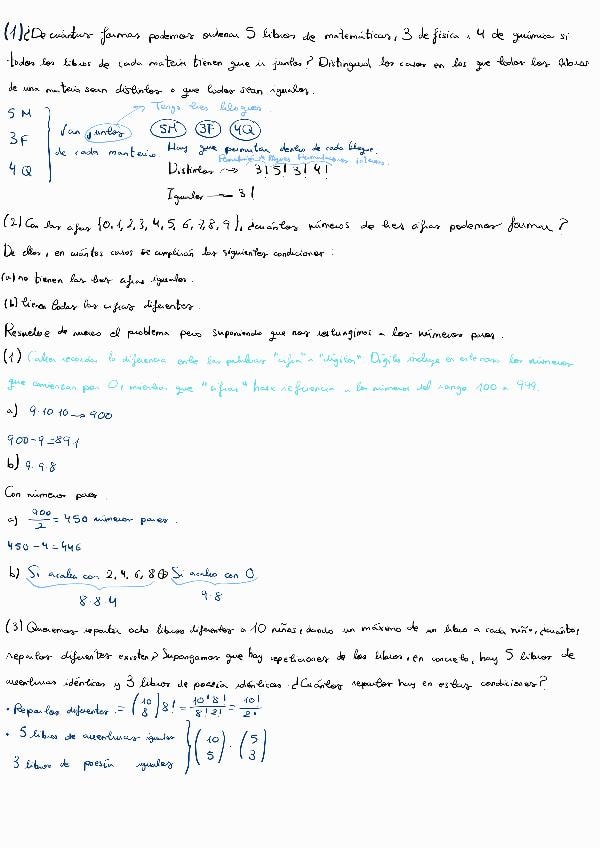 (1) ¿De cuántas formas podemos ordenar 5 libros de matemáticas, 3 de física y 4 de química si
todos los libros de cada materia tienen que ir juntos? Distinguid los casos en los que todos los libros
de una materia sean distintos o que todos sean iguales.
→ Tengo tres bloques.
5M
3F
4Q
Van juntos
de cada materia
5M 3F 4Q
Hay que permutar dentro de cada bloque.
Distintos → 3! 5! 3! 4!
Iguales → 3!
(2) Con las cifras {0, 1, 2, 3, 4, 5, 6, 7, 8, 9}, ¿cuántos números de tres cifras podemos formar?
De ellos, en cuántos casos se cumplirán las siguientes condiciones:
(a) no tienen las tres cifras iguales.
(b) tienen todas las cifras diferentes.
Resuelve de nuevo el problema pero suponiendo que nos restringimos a los números pares.
(1) Cabe recordar la diferencia entre las palabras "cifra" y "dígitos". Dígito incluye en este caso los números
que comienzan por 0, mientras que "cifras" hace referencia a los números del rango 100 a 999.
a) 9·10·10 → 900
900 - 9 = 891
b) 9·9·8
Con números pares
a) 900/2 = 450 números pares.
450 - 4 = 446
b) Si acaba con 2, 4, 6, 8 ⊕ Si acaba con 0
8·8·4 9·8
(3) Queremos repartir ocho libros diferentes a 10 niñas, dando un máximo de un libro a cada niñ@, ¿cuántos
repartos diferentes existen? Supongamos que hay repeticiones de los libros, en concreto, hay 5 libros de
aventuras idénticos y 3 libros de poesía idénticos ¿Cuántos repartos hay en estas condiciones?
• Repartos diferentes = (10 8) 8! = 10! 8! / 8! 2! = 10! / 2!
• 5 libros de aventuras iguales
3 libros de poesía iguales
(10 5) · (5 3)